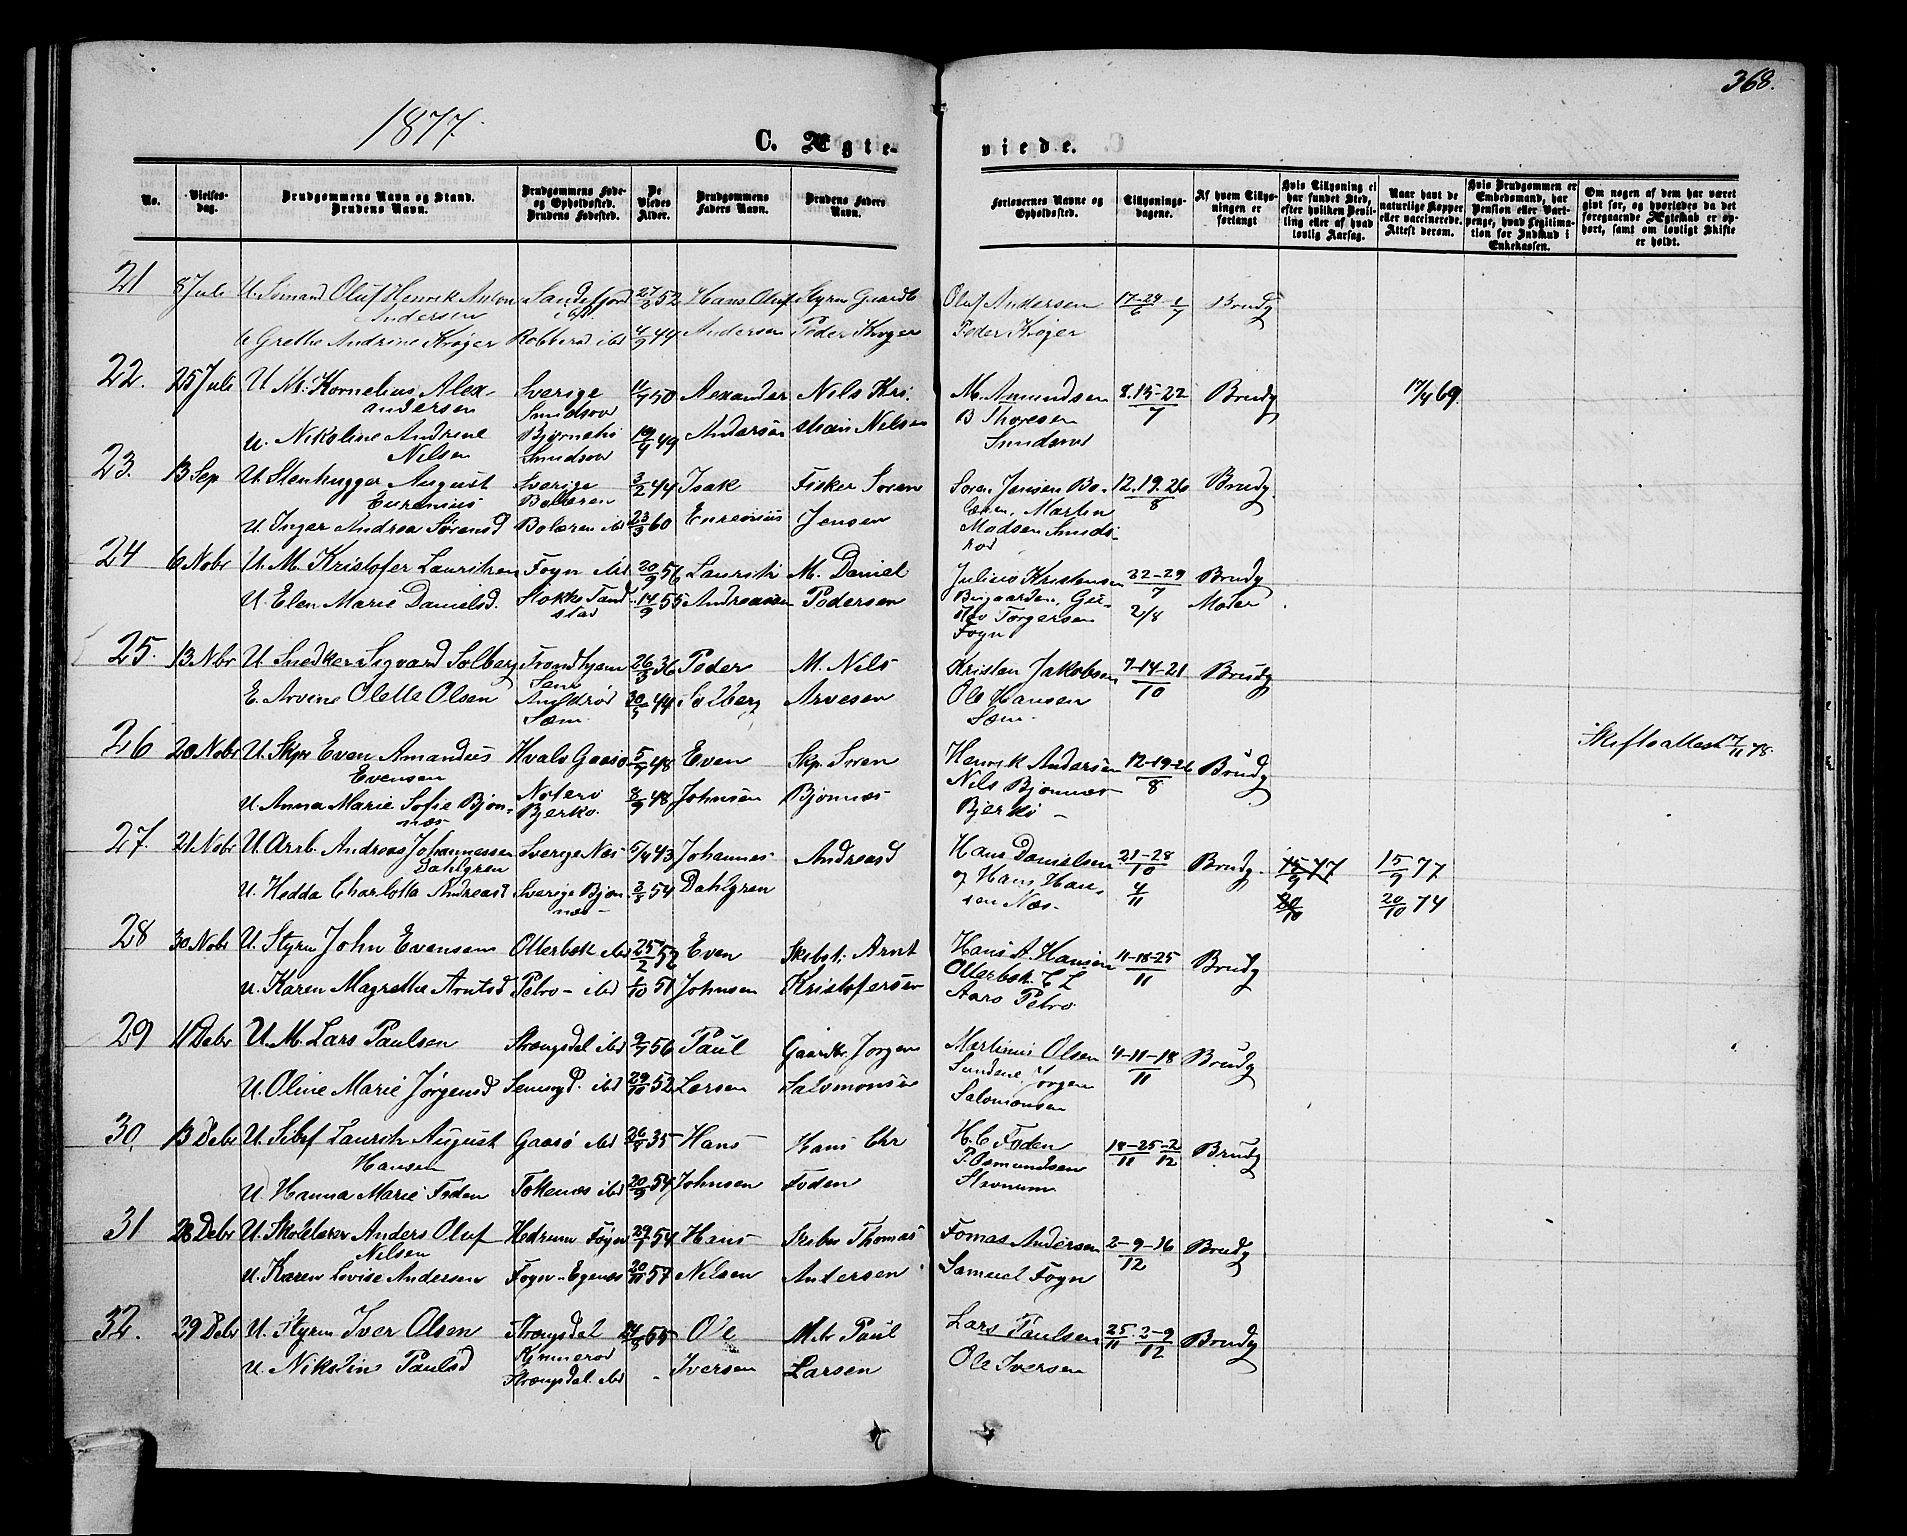 368.
1877.
C. Ægte-
viede.
No.
Vielses-
dag.
Brudgommens Navn og Stand.
Brudens Navn.
Brudgommens Føde-
og Opholdssted.
Brudens Fødested.
De
Viedes
Alder.
Brudgommens
Faders Navn.
Brudens Faders
Navn.
Forlovernes Navne og
Opholdssted.
Tillysnings-
dagene.
Af hvem Tillys-
ningen er
forlangt
Hvis Tillysning ei
har fundet Sted,
efter hvilken Bevil-
ling eller af hvad
lovlig Aarsag.
Naar havt de
naturlige Kopper
eller vaccinerede.
Attest derom.
Hvis Brudgommen er
Embedsmand, har
Pension eller Vart-
penge, hvad Legitima-
tion for Indskud i
Enkekassen.
Om nogen af dem har været
gift før, og hvorledes da det
foregaaende Ægteskab er op-
hørt, samt om lovligt Skifte
er holdt.
21 8 Juli U. Sömand Oluf Henrik Anton Sandefjord 27/2 52 Hans Oluf Styrm Gaardb Oluf Andersen 17-24/6 1/7 Brudg
Andersen ibd
U Grethe Andrine Krøger Robberød ibd 4/9 49 Andersen Peder Krøger Peder Krøger
22. 25 Juli U. M. Kornelius Alex- Sverige 11/7 50 Alexander Nils Kri. M. Amundsen 8.15-22/7 Brudg 17/4 69.
andersen Smidsrød B Thoresen
U. Nikoline Andrine Bjørnebo 19/4 49 Andersen stian Nilsen Smidsrød
Nilsen Smidsrød
23. 13 Sep U. Stenhugger August Sverige 3/2 44 Isak Fisker Søren Søren Jensen Bo- 12.19.26/8 Brudg.
Eurenius Bolæren læren, Martin
U. Inger Andrea Sørensd Bolæren ibd 23/3 60 Eurenius Jensen Madsen Smids-
rød
24 6 Nobr U. M. Kristofer Lauritzen Føyn ibd 20/9 56 Lauritz M. Daniel Julius Kristensen 22-29/7 Brudg
U. Elen Marie Danielsd. Stokke Tand 14/9 55 Andreassen Pedersen Buggaarden, Gu- 2/8 Moler
stad Torgersen
Føyn
25. 13 Nbr U Snedker Sigvard Solberg Trondhjem 26/3 36 Peder M. Nils Kristen Jakobsen 7-14-21/10 Brudg
Sem
E. Arvine Olette Olsen 30/5 44 Solberg Arvesen Ole Hansen
Sæm Sem
26 20 Nobr U. Skpr Even Amandus Hvalö Gaasö 5/7 48 Even Skp. Sören Henrik Andersen 12-19-26/8 Brudg Skifteattest 17/11 78.
Evensen Nils Bjønnes
U. Anna Marie Sofie Bjøn- Noterö 8/9 48 Johnsen Bjønnes Bjerkö
næs Bjerko.
27. 21 Nobr U. Arb. Andreas Johannessen Sverige Næs 5/4 43 Johannes Andreasd Hans Danielsen 21-28/10 Brudg. 15/9 77 15/9 77
Dahlgren og Hans Han-
U. Hedda Charlotta Andreasd Sverige Bjøn 3/8 54 Dahlgren sen Næs. 4/11 20/10 20/10 74
næs
28 30 Nobr U. Styrm John Evensen Otterbæk ibd 25/2 52 Even Skibst. Arnt Hans A. Hansen 11-18-25/11 Brudg
Otterbæk. C L
U. Karen Magrethe Arntsd Petrö - ibd 1/10 51 Johnsen Kristofersen Aarø Petrø
29 11 Debr U. M. Lars Paulsen Strengsdal ibd 9/7 56 Paul Gaardbr Jørgen Martinius Olsen 4-11-18/11 Brudg
Sundene Jørgen
U. Oline Marie Jørgensd ibd 29/10 52 Larsen Salomonsen Salomonsen
30. 13 Debr U. Sibf Lauritz August Gaasö ibd 26/8 35 Hans Hans Chr H. C Foden 18-25/11 -2/12 Brudg
Hansen P. Osmundsen
U Hanna Marie Foden Tokenæs ibd 20/9 54 Johnsen Foden Stronum
31 28 Debr U. Skolelærer Anders Oluf Hedrum Føyn 29/7 54 Hans Thomas Tomas Andersen 2-9-16/12 Brudg
Nilsen
U. Karen Lovise Andersen Føyn - Egenes 20/11 57 Nilsen Andersen Samuel Føyn
32. 29 Debr U. Styrm Iver Olsen Strengsdal 55 Ole Matr Paul Lars Paulsen 25/11 2-9/12 Brudg
Kjønnerød
U. Nikolin Paulsd Strengsdal ibd - Iversen Larsen Ole Iversen